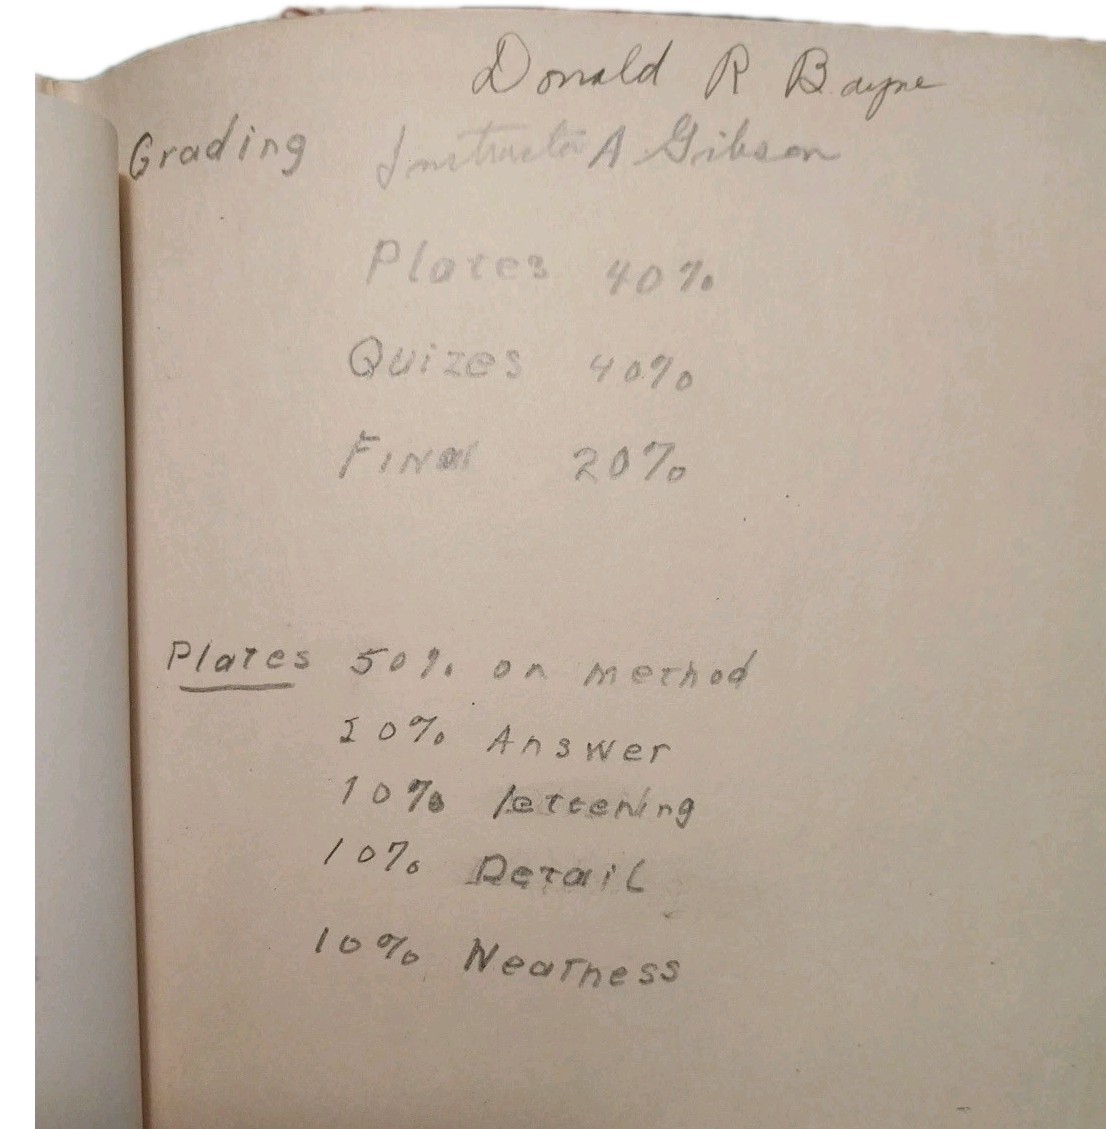 Donald R Bayne
Grading Instructor A Gibson
Plates 40%
Quizes 40%
Final 20%
Plates 50% on method
10% Answer
10% lettering
10% Detail
10% Neatness